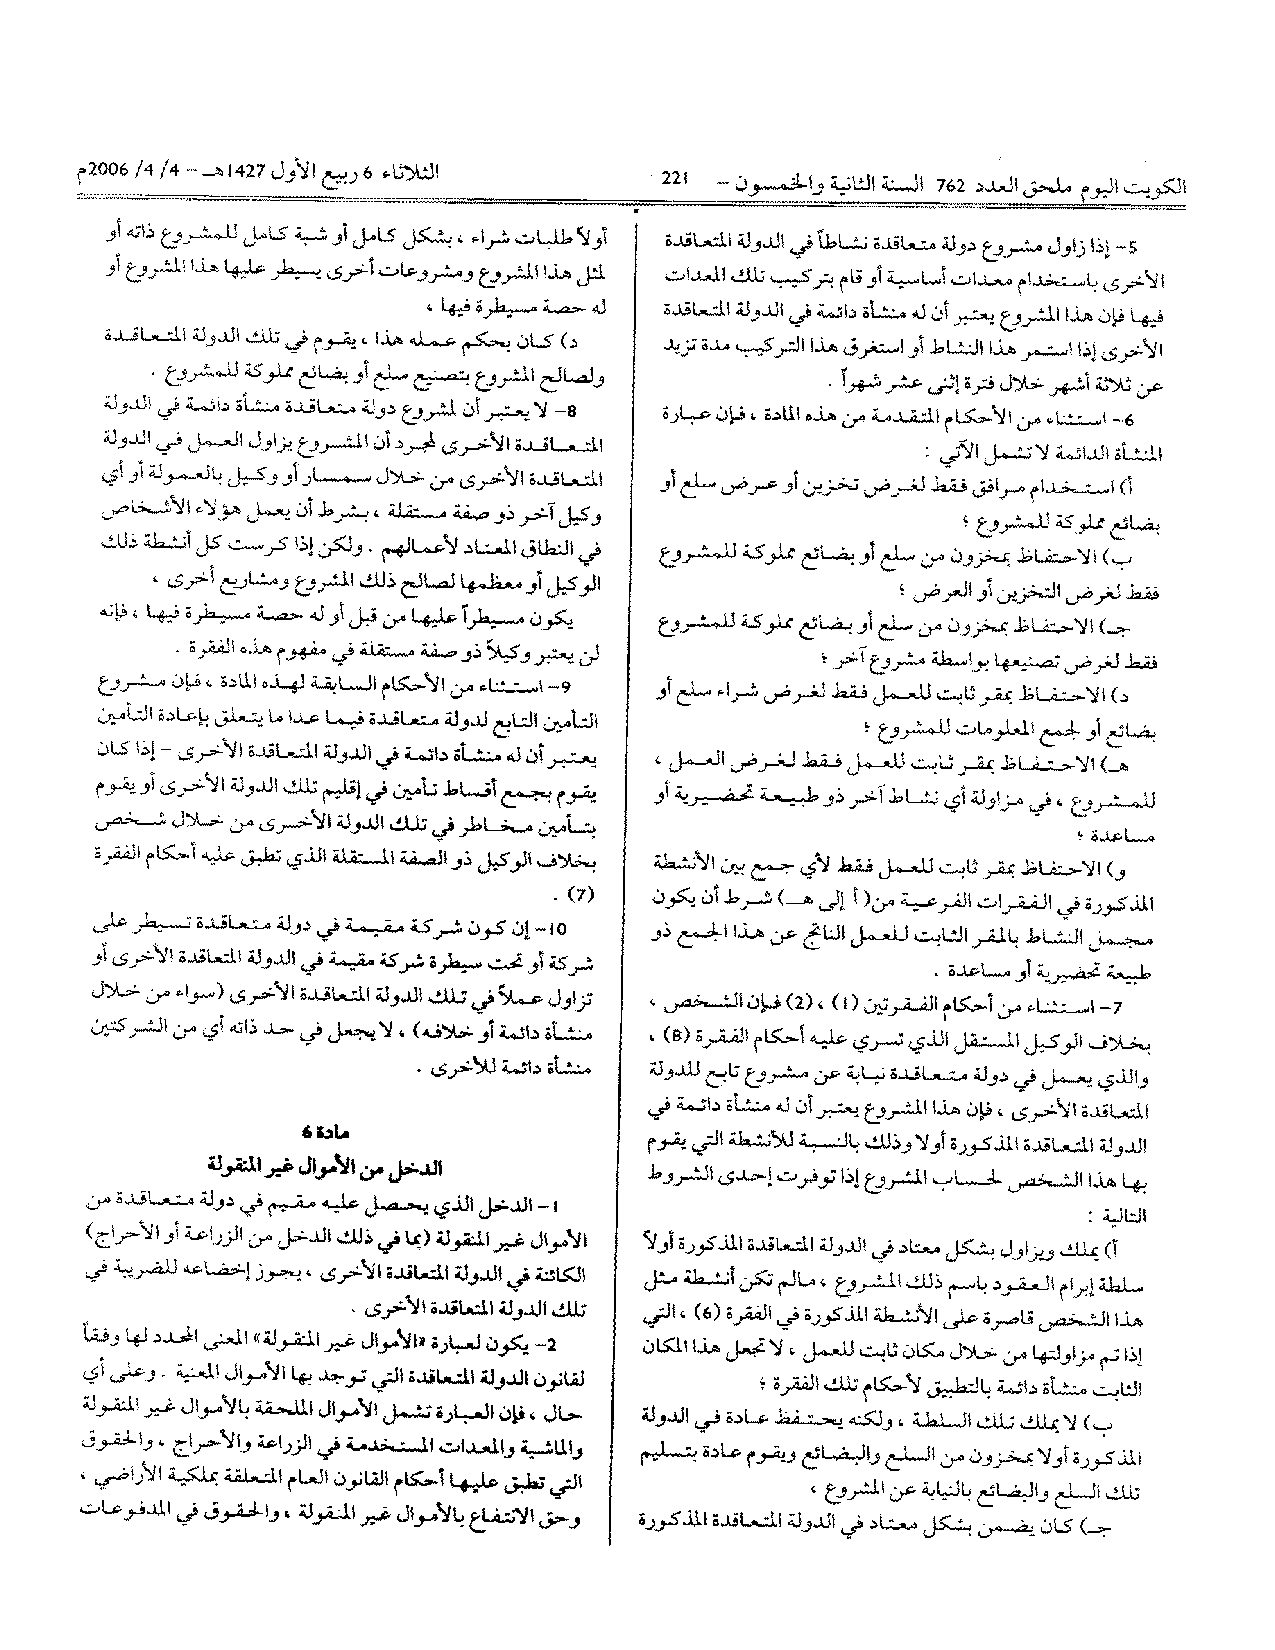 الكويت اليوم ملحق العدد 762 السنة الثانية والخمسون - 221 الثلاثاء 6 ربيع الأول 1427هـ - 4 /4 /2006م
5- إذا زاول مشروع دولة متعاقدة نشاطاً في الدولة المتعاقدة
الأخرى باستخدام معدات أساسية أو قام بتركيب تلك المعدات
فيها فإن هذا المشروع يعتبر أن له منشأة دائمة في الدولة المتعاقدة
الأخرى إذا استمر هذا النشاط أو استغرق هذا التركيب مدة تزيد
عن ثلاثة أشهر خلال فترة إثنى عشر شهراً .
6- استثناء من الأحكام المتقدمة من هذه المادة ، فإن عبارة
المنشأة الدائمة لا تشمل الآتي :
أ) استخدام مرافق فقط لغرض تخزين أو عرض سلع أو
بضائع مملوكة للمشروع ؛
ب) الاحتفاظ بمخزون من سلع أو بضائع مملوكة للمشروع
فقط لغرض التخزين أو العرض ؛
جـ) الاحتفاظ بمخزون من سلع أو بضائع مملوكة للمشروع
فقط لغرض تصنيعها بواسطة مشروع آخر ؛
د) الاحتفاظ بمقر ثابت للعمل فقط لغرض شراء سلع أو
بضائع أو لجمع المعلومات للمشروع ؛
هـ) الاحتفاظ بمقر ثابت للعمل فقط لغرض العمل ،
للمشروع ، في مزاولة أي نشاط آخر ذو طبيعة تحضيرية أو
مساعدة ؛
و) الاحتفاظ بمقر ثابت للعمل فقط لأي جمع بين الأنشطة
المذكورة في الفقرات الفرعية من( أ إلى هـ) شرط أن يكون
مجمل النشاط بالمقر الثابت للعمل الناتج عن هذا الجمع ذو
طبيعة تحضيرية أو مساعدة .
7- استثناء من أحكام الفقرتين (1) ، (2) فإن الشخص ،
بخلاف الوكيل المستقل الذي تسري عليه أحكام الفقرة (8) ،
والذي يعمل في دولة متعاقدة نيابة عن مشروع تابع للدولة
المتعاقدة الأخرى ، فإن هذا المشروع يعتبر أن له منشأة دائمة في
الدولة المتعاقدة المذكورة أولا وذلك بالنسبة للأنشطة التي يقوم
بها هذا الشخص لحساب المشروع إذا توفرت إحدى الشروط
التالية :
أ) يملك ويزاول بشكل معتاد في الدولة المتعاقدة المذكورة أولاً
سلطة إبرام العقود باسم ذلك المشروع ، مالم تكن أنشطة مثل
هذا الشخص قاصرة على الأنشطة المذكورة في الفقرة (6) ، التي
إذا تم مزاولتها من خلال مكان ثابت للعمل ، لا تجعل هذا المكان
الثابت منشأة دائمة بالتطبيق لأحكام تلك الفقرة ؛
ب) لا يملك تلك السلطة ، ولكنه يحتفظ عادة في الدولة
المذكورة أولا بمخزون من السلع والبضائع ويقوم عادة بتسليم
تلك السلع والبضائع بالنيابة عن المشروع ،
جـ) كان يضمن بشكل معتاد في الدولة المتعاقدة المذكورة
أولاً طلبات شراء ، بشكل كامل أو شبة كامل للمشروع ذاته أو
لمثل هذا المشروع ومشروعات أخرى يسيطر عليها هذا المشروع أو
له حصة مسيطرة فيها ،
د) كان بحكم عمله هذا ، يقوم في تلك الدولة المتعاقدة
ولصالح المشروع بتصنيع سلع أو بضائع مملوكة للمشروع .
8- لا يعتبر أن لمشروع دولة متعاقدة منشأة دائمة في الدولة
المتعاقدة الأخرى لمجرد أن المشروع يزاول العمل في الدولة
المتعاقدة الأخرى من خلال سمسار أو وكيل بالعمولة أو أي
وكيل آخر ذو صفة مستقلة ، بشرط أن يعمل هؤلاء الأشخاص
في النطاق المعتاد لأعمالهم . ولكن إذا كرست كل أنشطة ذلك
الوكيل أو معظمها لصالح ذلك المشروع ومشاريع أخرى ،
يكون مسيطراً عليها من قبل أو له حصة مسيطرة فيها ، فإنه
لن يعتبر وكيلاً ذو صفة مستقلة في مفهوم هذه الفقرة .
9- استثناء من الأحكام السابقة لهذه المادة ، فإن مشروع
التأمين التابع لدولة متعاقدة فيما عدا ما يتعلق بإعادة التأمين
يعتبر أن له منشأة دائمة في الدولة المتعاقدة الأخرى - إذا كان
يقوم بجمع أقساط تأمين في إقليم تلك الدولة الأخرى أو يقوم
بتأمين مخاطر في تلك الدولة الأخرى من خلال شخص
بخلاف الوكيل ذو الصفة المستقلة الذي تطبق عليه أحكام الفقرة
(7) .
10- إن كون شركة مقيمة في دولة متعاقدة تسيطر على
شركة أو تحت سيطرة شركة مقيمة في الدولة المتعاقدة الأخرى أو
تزاول عملاً في تلك الدولة المتعاقدة الأخرى (سواء من خلال
منشأة دائمة أو خلافه) ، لا يجعل في حد ذاته أي من الشركتين
منشأة دائمة للأخرى .
مادة 6
الدخل من الأموال غير المنقولة
1- الدخل الذي يحصل عليه مقيم في دولة متعاقدة من
الأموال غير المنقولة (بما في ذلك الدخل من الزراعة أو الأحراج)
الكائنة في الدولة المتعاقدة الأخرى ، يجوز إخضاعه للضريبة في
تلك الدولة المتعاقدة الأخرى .
2- يكون لعبارة «الأموال غير المنقولة» المعنى المحدد لها وفقاً
لقانون الدولة المتعاقدة التي توجد بها الأموال المعنية . وعلى أي
حال ، فإن العبارة تشمل الأموال الملحقة بالأموال غير المنقولة
والماشية والمعدات المستخدمة في الزراعة والأحراج ، والحقوق
التي تطبق عليها أحكام القانون العام المتعلقة بملكية الأراضي ،
وحق الانتفاع بالأموال غير المنقولة ، والحقوق في المدفوعات